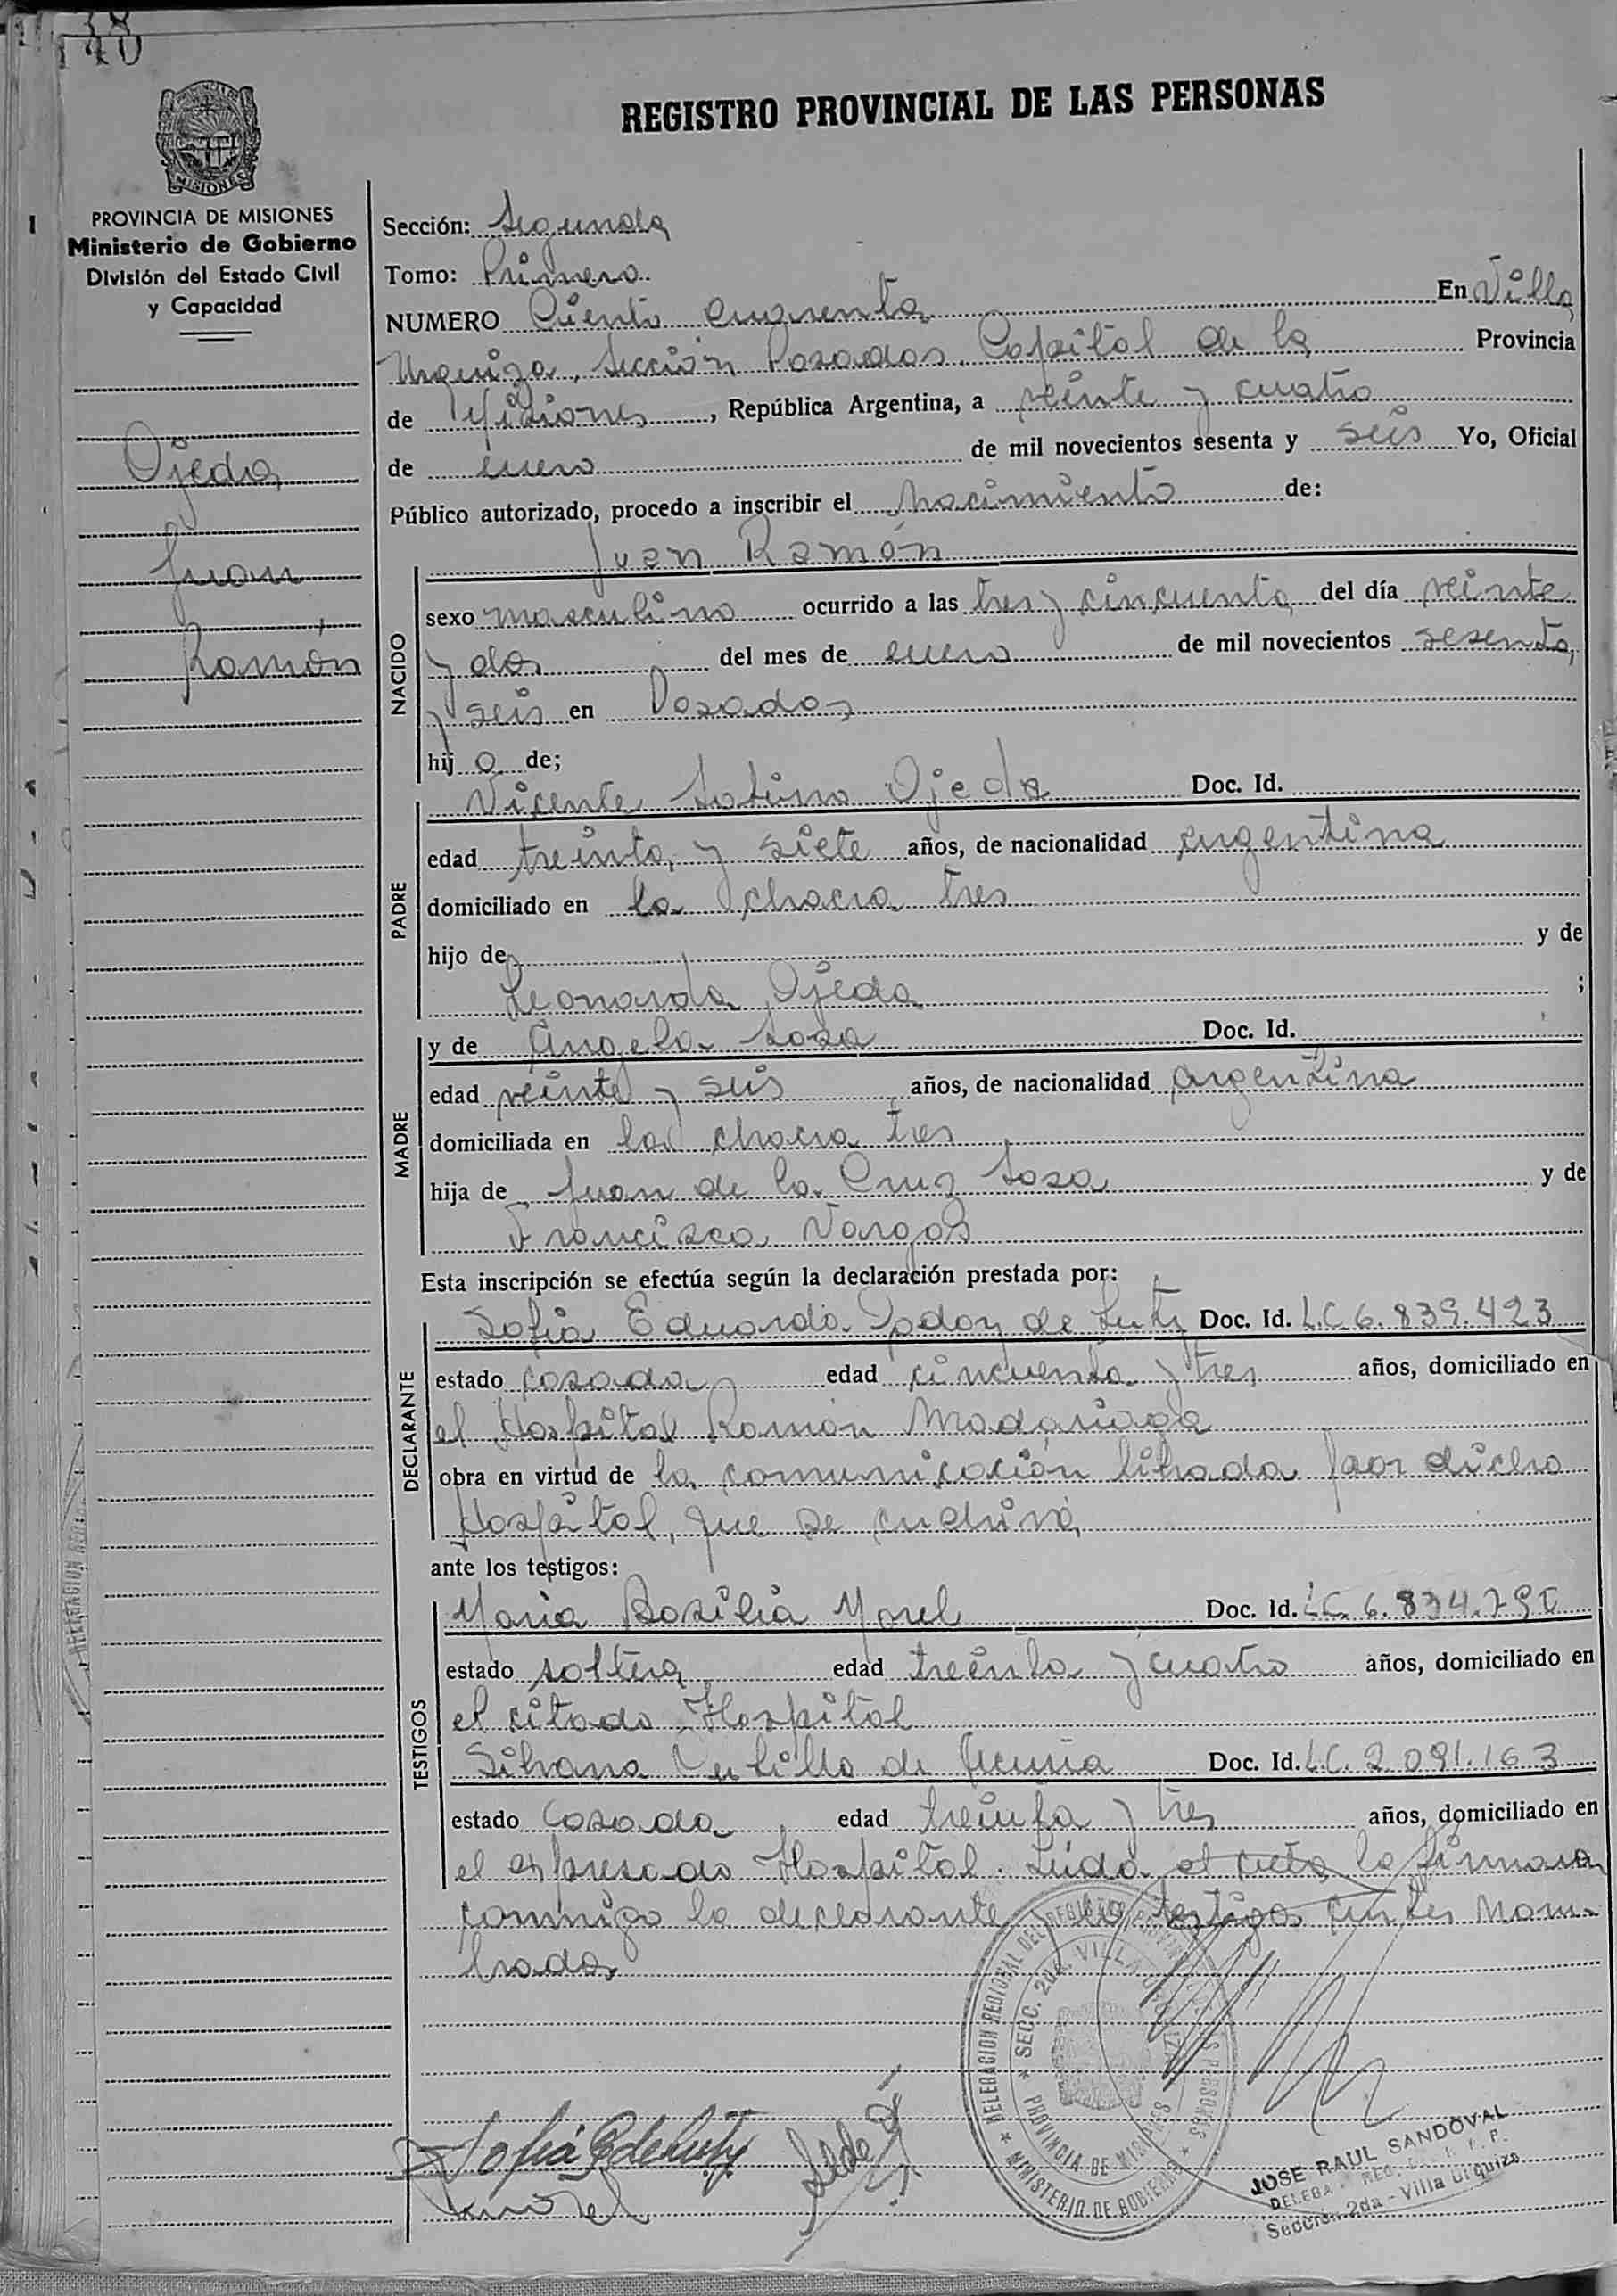 140
REGISTRO PROVINCIAL DE LAS PERSONAS
MISIONES
PROVINCIA DE MISIONES
Ministerio de Gobierno
División del Estado Civil
y Capacidad
Ojeda
Juan
Ramón
Sección: Segunda
Tomo: Primero
NUMERO Ciento cuarenta En Villa
Urquiza, Sección Posadas, Capital de la Provincia
de Misiones, República Argentina, a veinte y cuatro
de enero de mil novecientos sesenta y seis Yo, Oficial
Público autorizado, procedo a inscribir el nacimiento de:
Juan Ramón
NACIDO
sexo masculino ocurrido a las tres y cincuenta del día veinte
y dos del mes de enero de mil novecientos sesenta
y seis en Posadas
hij o de;
PADRE
Vicente Ojeda Doc. Id.
edad treinta y siete años, de nacionalidad argentina
domiciliado en la chacra tres
hijo de y de
Leonarda Ojeda ;
MADRE
y de Angela Sosa Doc. Id.
edad veinte y seis años, de nacionalidad argentina
domiciliada en la chacra tres
hija de Juan de la Cruz Sosa y de
Francisca Vargas
Esta inscripción se efectúa según la declaración prestada por:
DECLARANTE
Sofia Eduarda Godoy de Lutz Doc. Id. L.C 6.839.423
estado casada edad cincuenta y tres años, domiciliado en
el Hospital Ramón Madariaga
obra en virtud de la comunicación librada por dicho
Hospital, que se archiva
ante los testigos:
TESTIGOS
Maria Basilia Morel Doc. Id. L.C. 6.834.790
estado soltera edad treinta y cuatro años, domiciliado en
el citado Hospital
Silvana de Acuña Doc. Id. L.C. 2.091.163
estado casada edad treinta y tres años, domiciliado en
el expresado Hospital. Leída el acta, la firman
conmigo la declarante y los testigos antes nom-
brados
DELEGACION REGIONAL DEL REGISTRO PROVINCIAL DE LAS PERSONAS
SECC. 2da. VILLA URQUIZA
PROVINCIA DE MISIONES
MINISTERIO DE GOBIERNO
Sofia G de Lutz
Morel
JOSE RAUL SANDOVAL
Sección 2da - Villa Urquiza